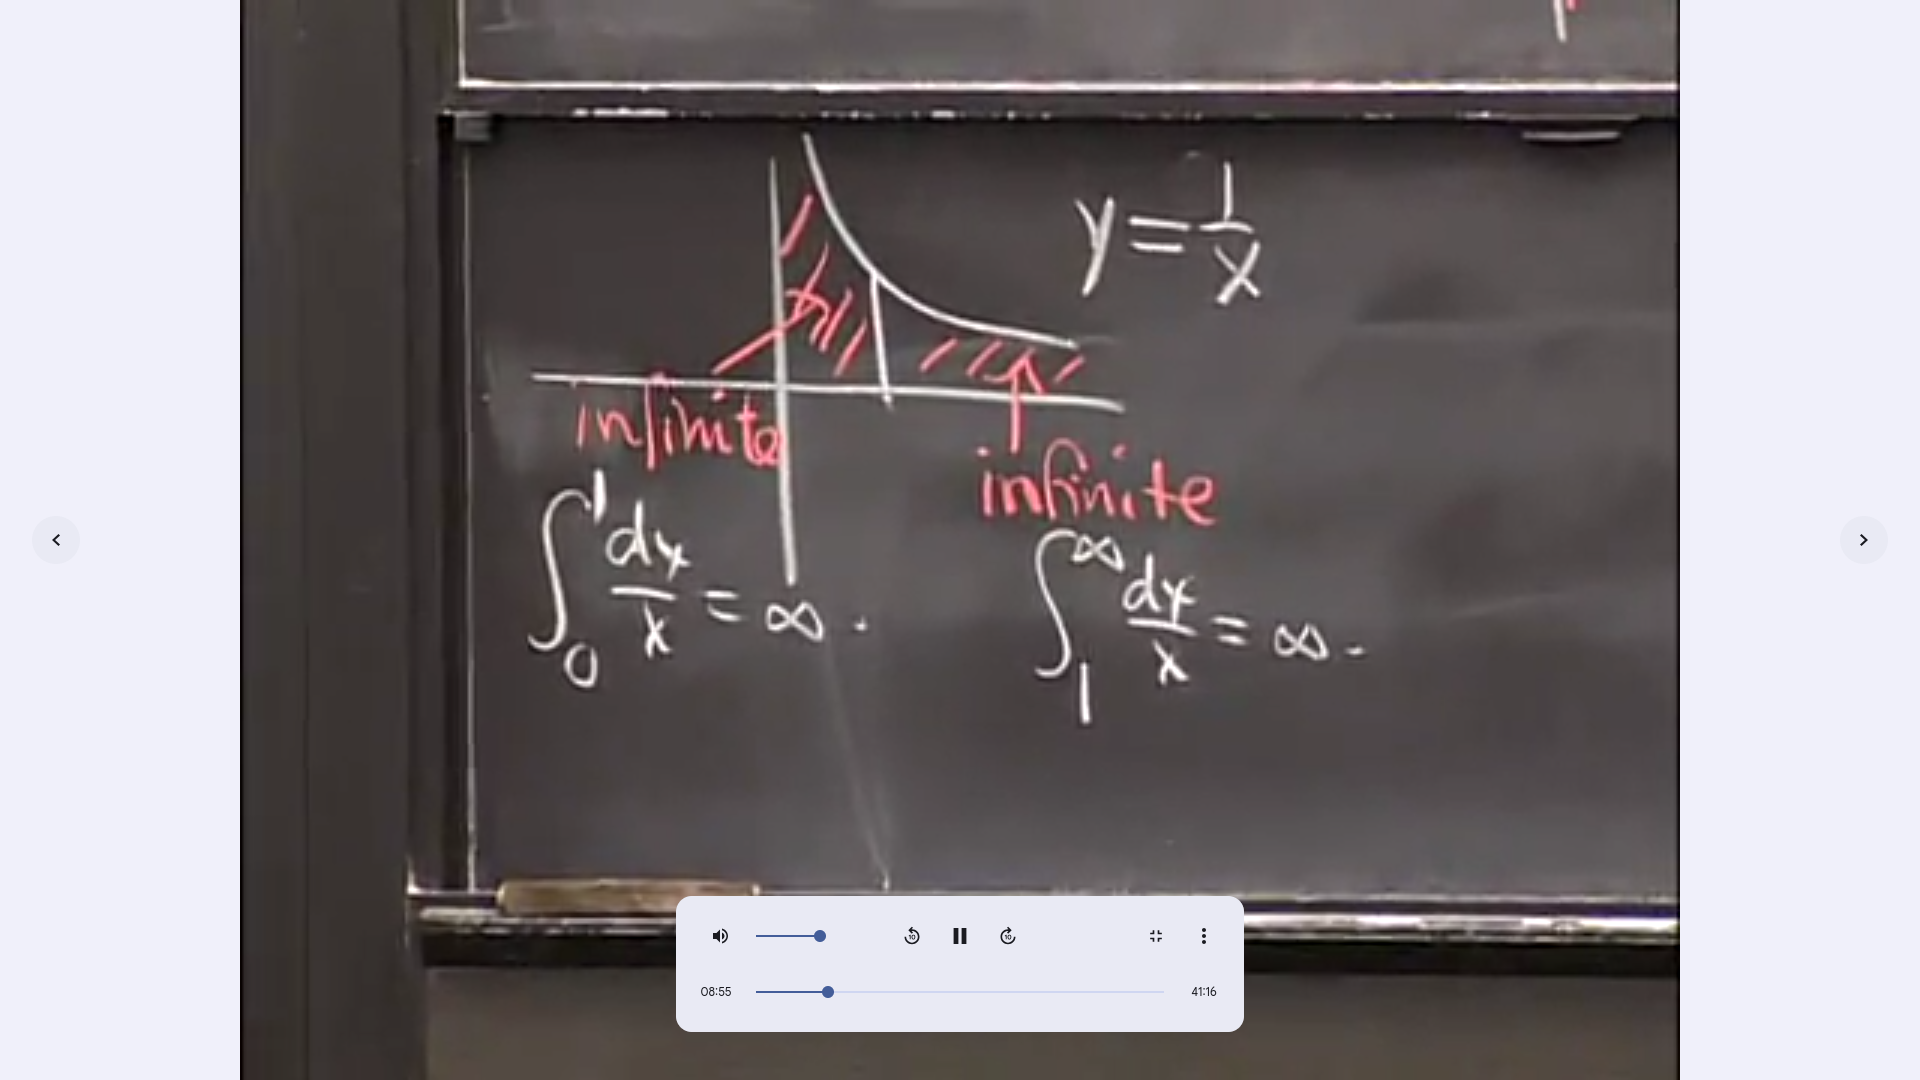 y = 1/x
infinite
infinite
∫₀¹ dx/x = ∞.
∫₁^∞ dx/x = ∞.
10
10
08:55
41:16